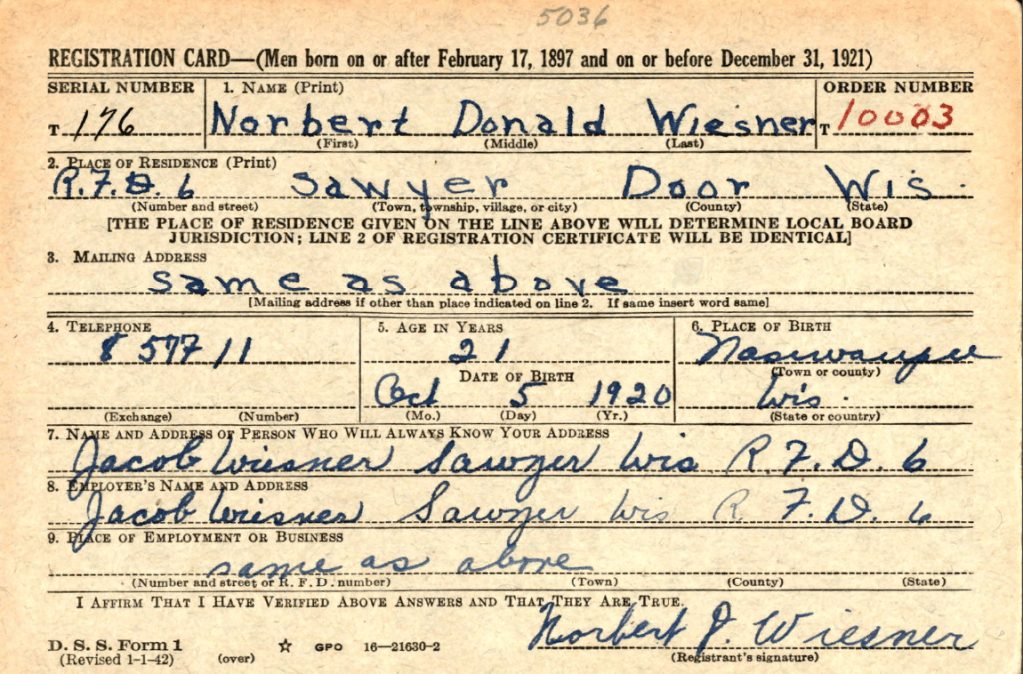 5036
REGISTRATION CARD—(Men born on or after February 17, 1897 and on or before December 31, 1921)
SERIAL NUMBER 1. NAME (Print) ORDER NUMBER
T 176 Norbert Donald Wiesner T 10003
(First) (Middle) (Last)
2. PLACE OF RESIDENCE (Print)
R.F.D. 6 Sawyer Door Wis.
(Number and street) (Town, township, village, or city) (County) (State)
[THE PLACE OF RESIDENCE GIVEN ON THE LINE ABOVE WILL DETERMINE LOCAL BOARD
JURISDICTION; LINE 2 OF REGISTRATION CERTIFICATE WILL BE IDENTICAL]
3. MAILING ADDRESS
same as above
[Mailing address if other than place indicated on line 2. If same insert word same]
4. TELEPHONE 5. AGE IN YEARS 6. PLACE OF BIRTH
8 577 11 21 Nasewaupee
DATE OF BIRTH (Town or county)
Oct 5 1920 Wis.
(Exchange) (Number) (Mo.) (Day) (Yr.) (State or country)
7. NAME AND ADDRESS OF PERSON WHO WILL ALWAYS KNOW YOUR ADDRESS
Jacob Wiesner Sawyer Wis R.F.D. 6
8. EMPLOYER'S NAME AND ADDRESS
Jacob Wiesner Sawyer Wis R F.D. 6
9. PLACE OF EMPLOYMENT OR BUSINESS
same as above
(Number and street or R. F. D. number) (Town) (County) (State)
I AFFIRM THAT I HAVE VERIFIED ABOVE ANSWERS AND THAT THEY ARE TRUE.
Norbert D. Wiesner
D. S. S. Form 1 ☆ GPO 16—21630-2
(Revised 1-1-42) (over) (Registrant's signature)